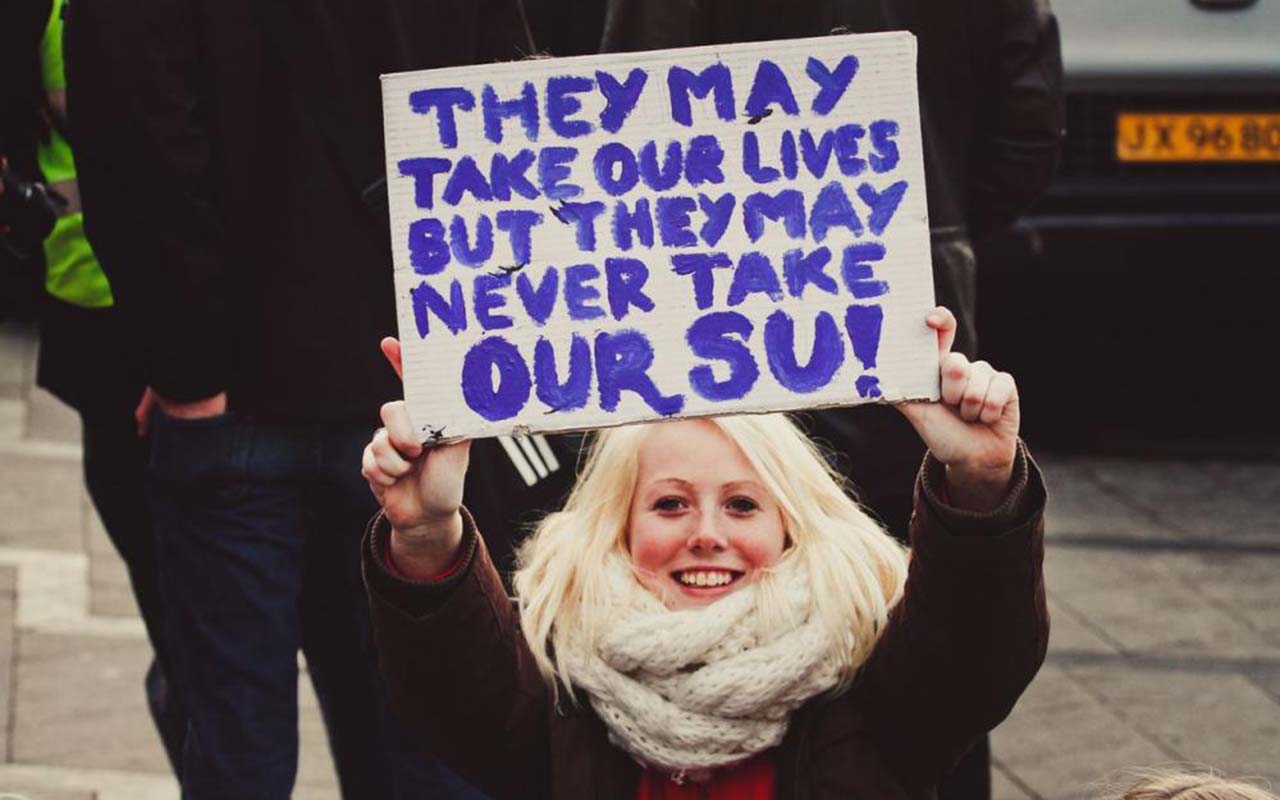 THEY MAY
TAKE OUR LIVES
BUT THEY MAY
NEVER TAKE
OUR SU!
JX 96 80